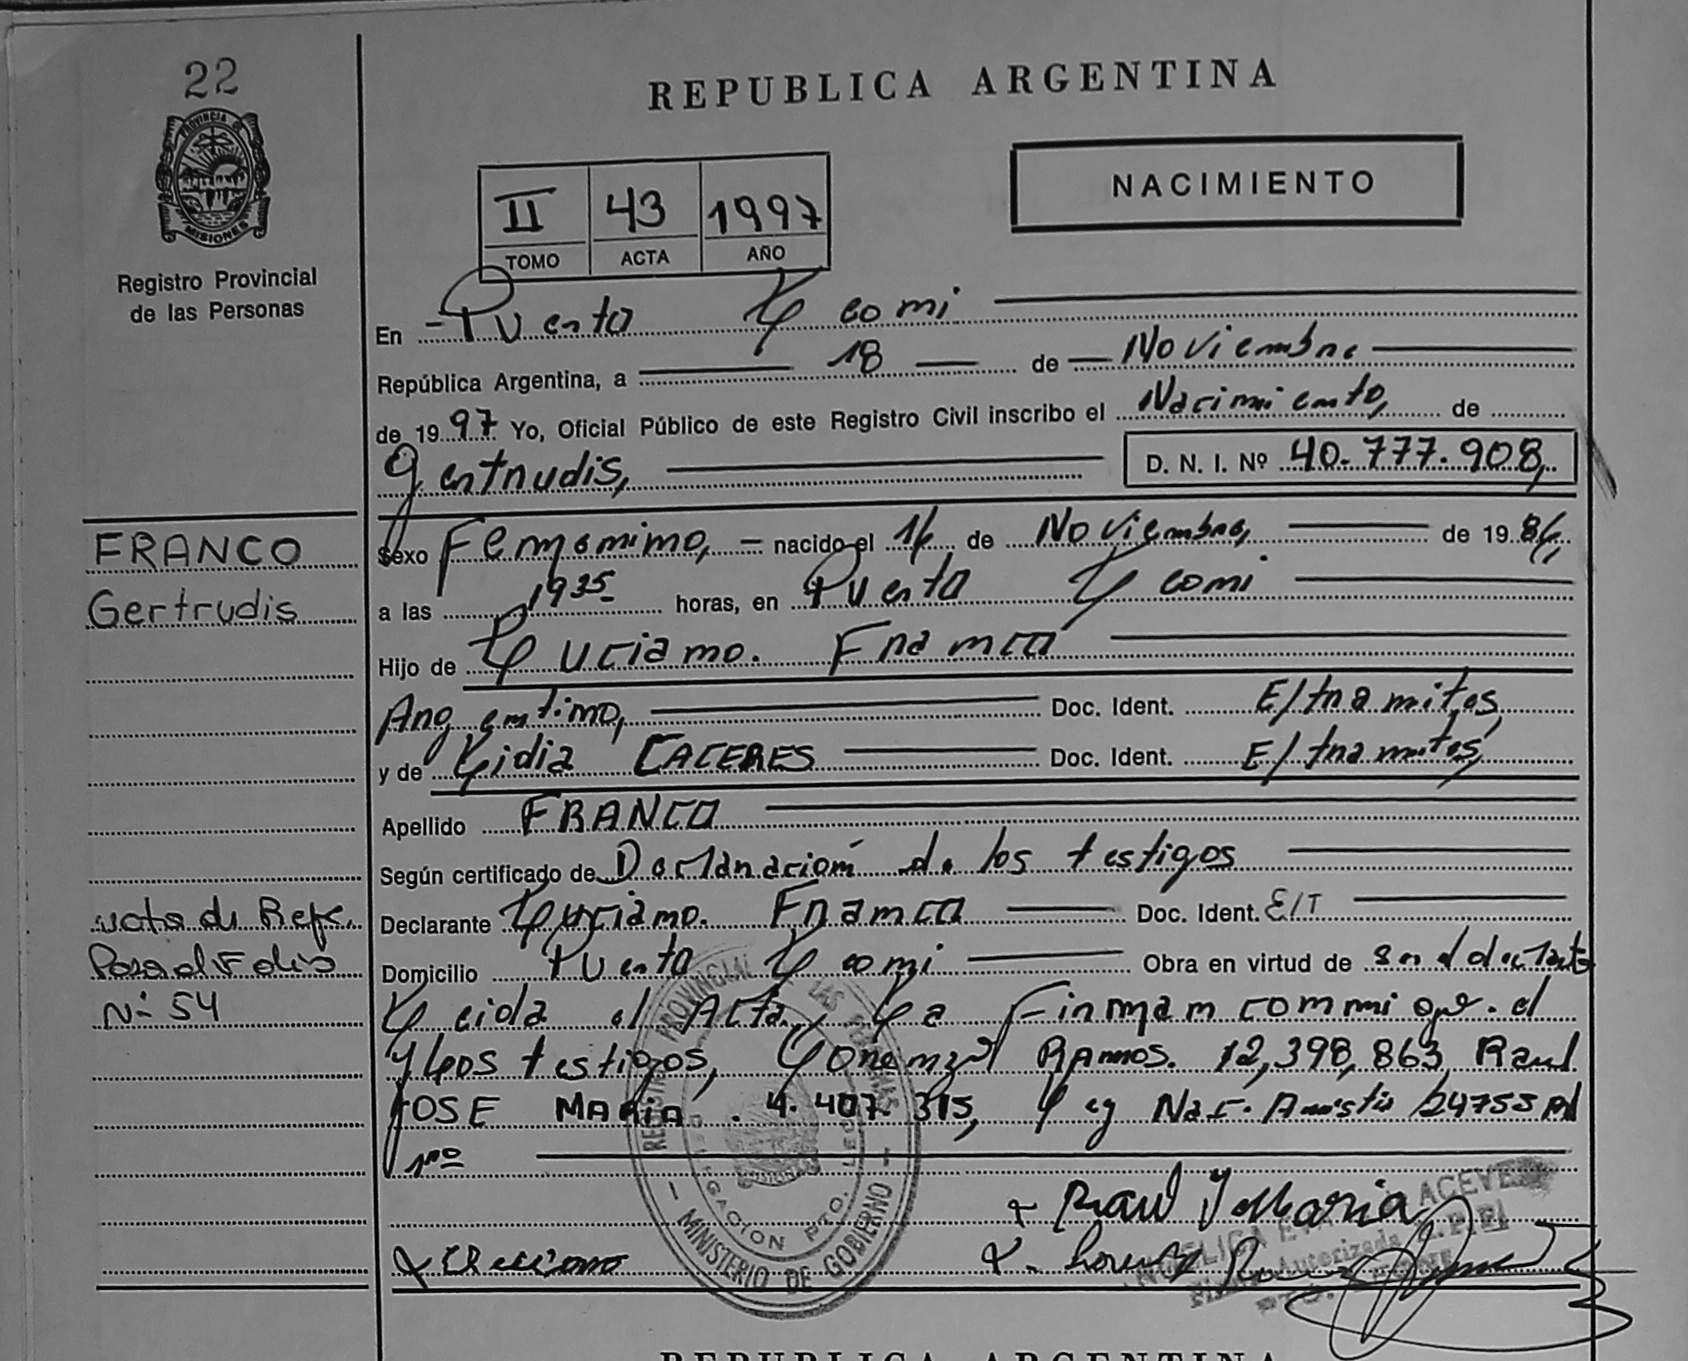 22
REPUBLICA ARGENTINA
PROVINCIA DE
MISIONES
Registro Provincial
de las Personas
II 43 1997
TOMO ACTA AÑO
NACIMIENTO
En Puerto Leoni
República Argentina, a 18 de Noviembre
de 1997 Yo, Oficial Público de este Registro Civil inscribo el Nacimiento, de
Gertrudis, D. N. I. Nº 40.777.908,
FRANCO
Gertrudis
Sexo Femenino, nacido el 14 de Noviembre, de 1986,
a las 19 35 horas, en Puerto Leoni
Hijo de Luciano. Franco
Argentino, Doc. Ident. E/tramites,
y de Lidia CACERES Doc. Ident. E/tramites,
Apellido FRANCO
Según certificado de Declaración de los testigos
Nota de Refe.
Pasa al Folio
N- 54
Declarante Luciano. Franco Doc. Ident. E/T
Domicilio Puerto Leoni Obra en virtud de ser el declarante
Leida el Acta, La Firman conmigo. el
y Los testigos, Ramos. 12,398,863, Raul
JOSE MARIA . 4.407.315, Ley Nac. Amnistia 24755 Art
1ro
REGISTRO PROVINCIAL DE LAS PERSONAS
DELEGACION PTO. LEONI
MINISTERIO DE GOBIERNO
Raul J Maria
ACEVE
Autorizada
REPUBLICA ARGENTINA